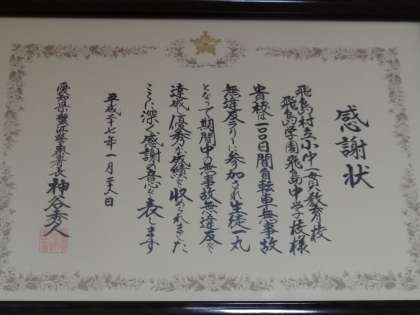 感謝状
飛島村立小中一貫教育校
飛島学園飛島中学校様
貴校は一〇〇日間自転車無事故
無違反ラリーに参加され生徒一丸
となって期間中の無事故無違反を
達成し優秀な成績を収められました
ここに深く感謝の意を表します
平成二十七年一月二十八日
愛知県蟹江警察署長 神谷秀人